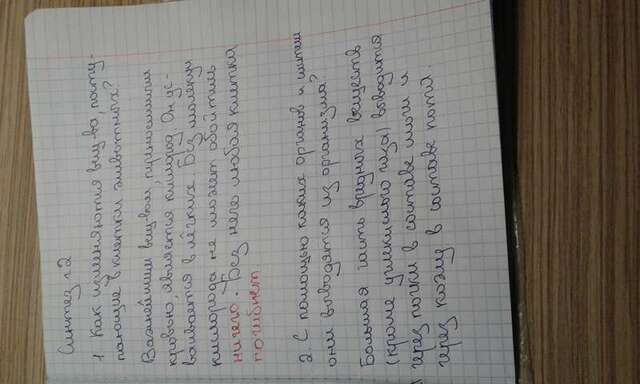 Синтез г.2
1 Как изменяются вещ-ва, посту-
пающие в клетки животных?
Важнейшим вещ-вом, приносимым
кровью, является кислород. Он ус-
ваивается в лёгких. Без молекул
кислорода не может обойтись
ничего. Без него любая клетка
погибнет.
2. С помощью каких органов и систем
они выводятся из организма?
Большая часть вредных веществ
(кроме углекислого газа) выводится
через почки в составе мочи и
через кожу в составе пота.